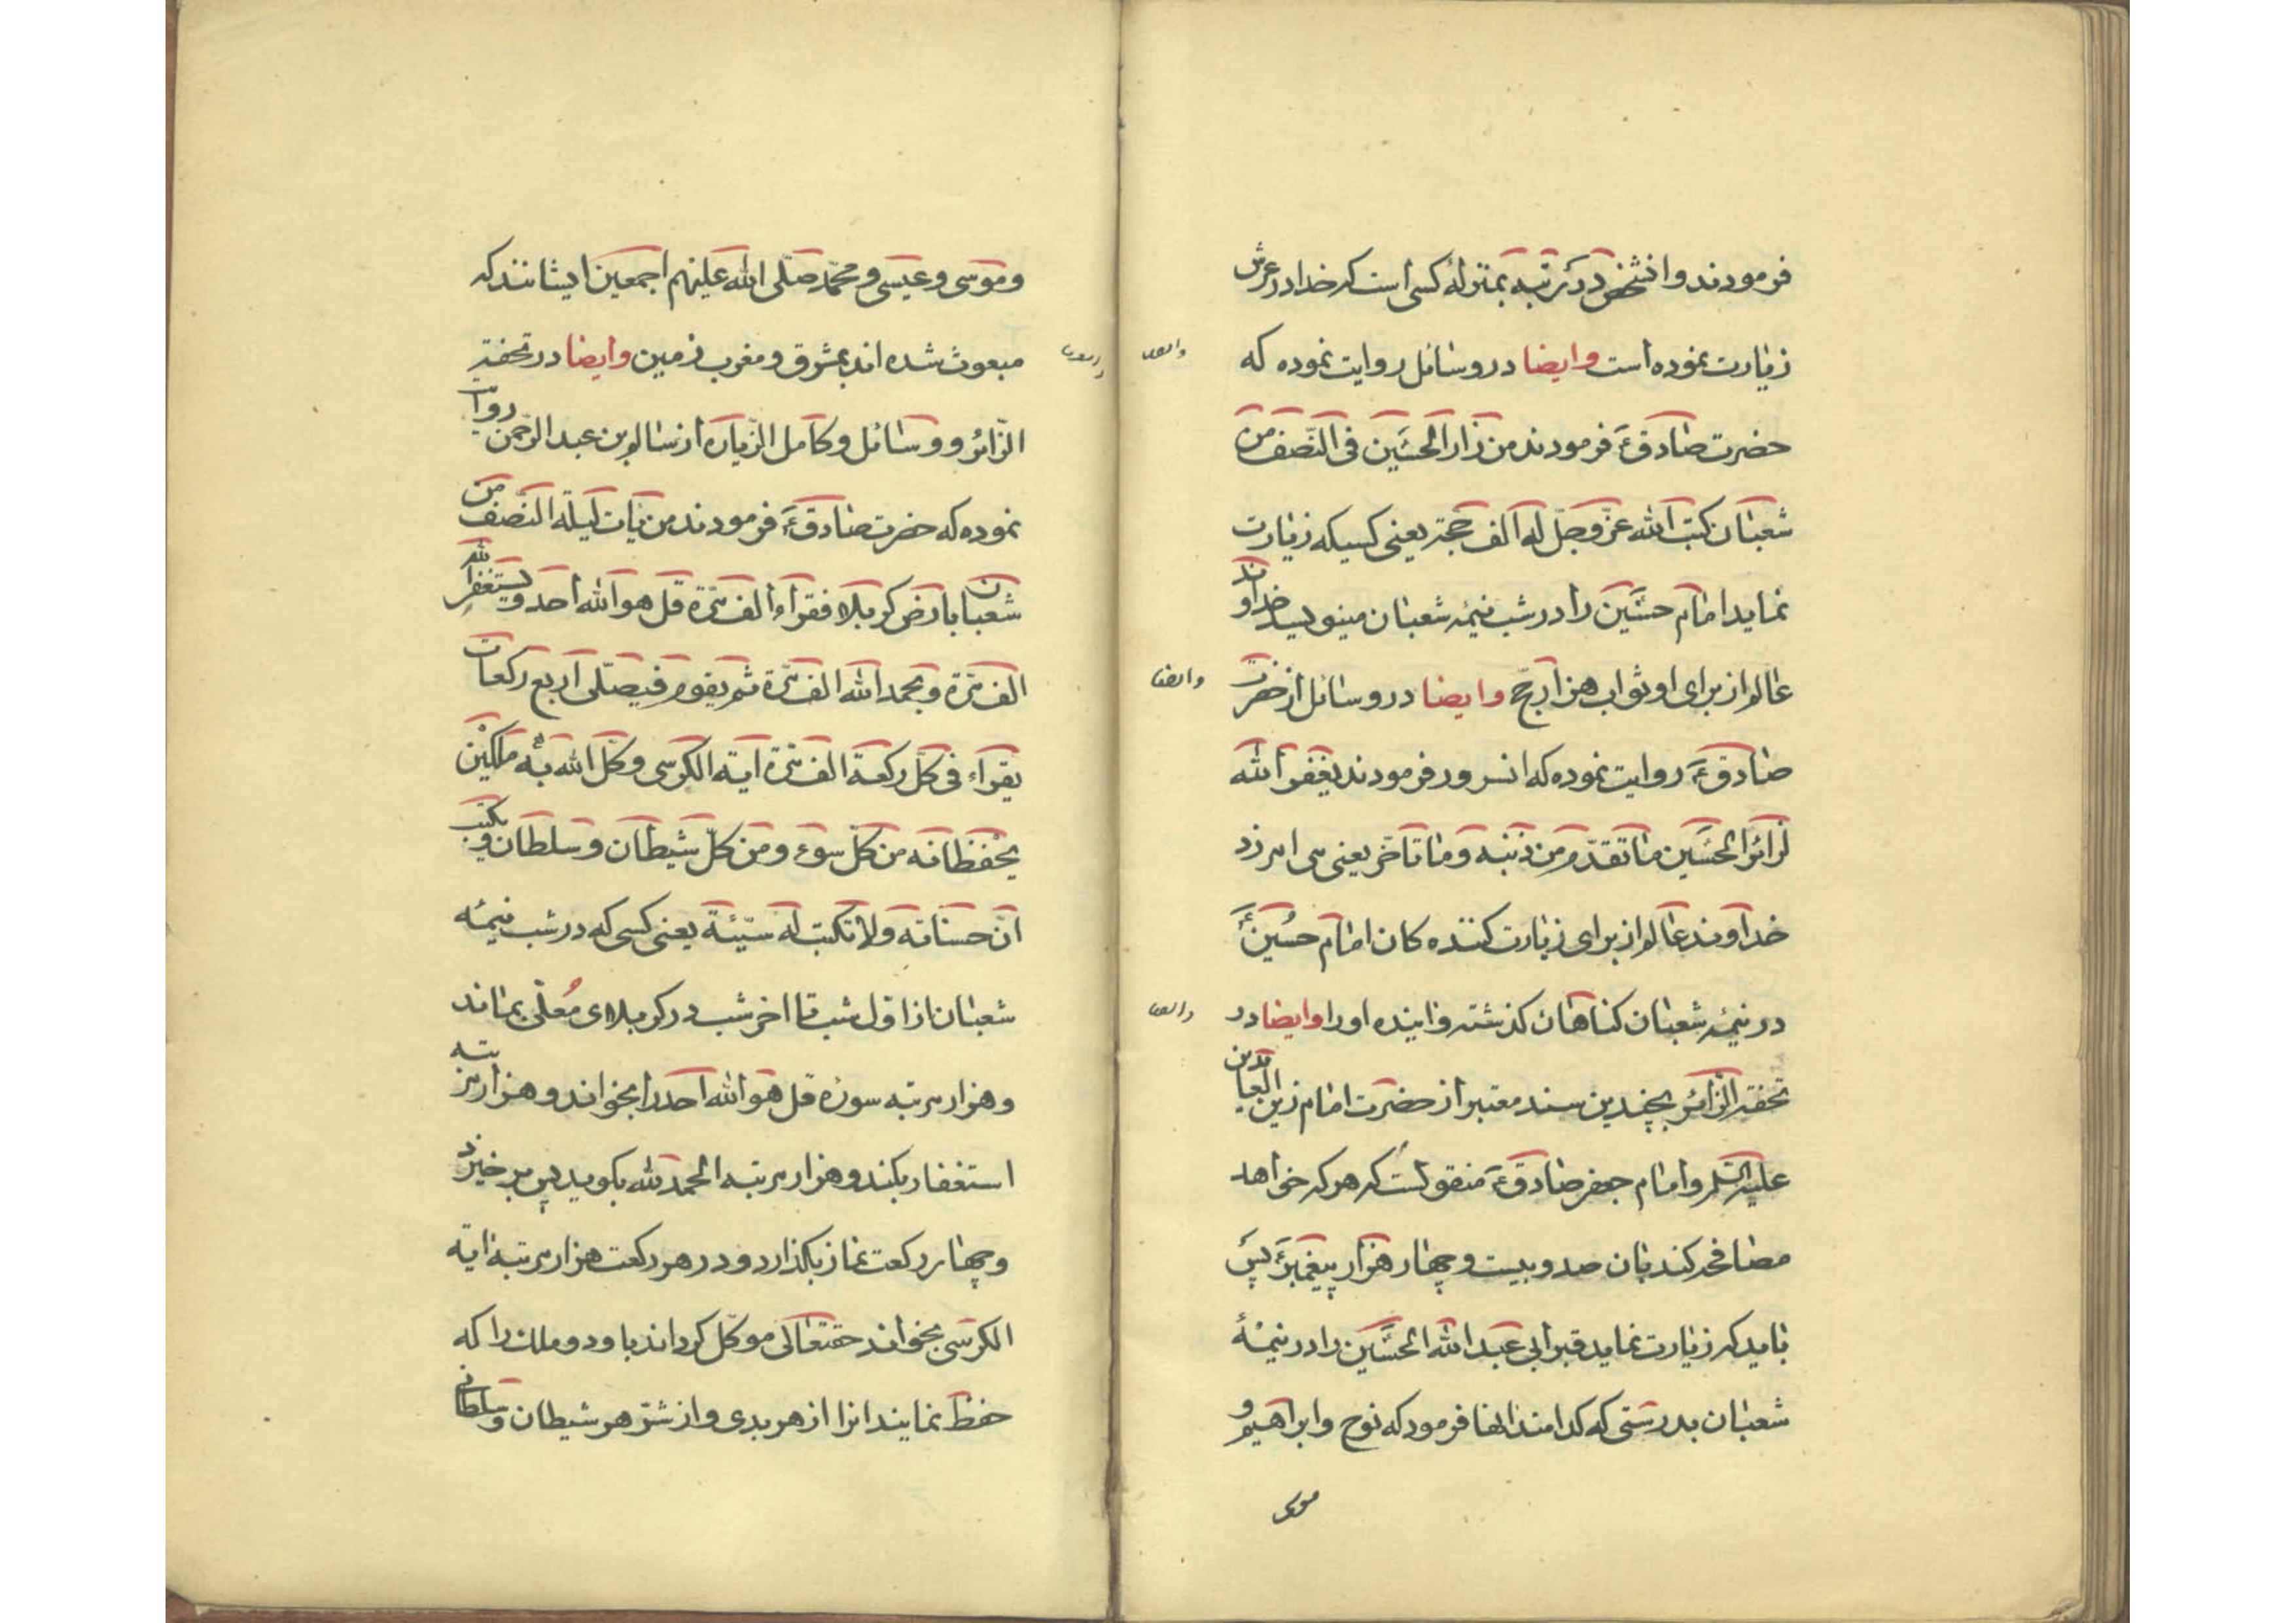 فرمودند وانشخص در کرتبه بمنزلهٔ کسی است که خدا در عرش
زیارت نموده است وایضا در وسائل روایت نموده که
وایضا
حضرت صادقؑ فرمودند من زار الحسین فی النّصف من
شعبان کتب الله عزّ وجلّ له الف حجّة یعنی کسیکه زیارت
نماید امام حسین را در شب نیمه شعبان مینویسد خداوند
عالم از برای او ثواب هزار حجّ وایضا در وسائل از حضرت
وایضا
صادقؑ روایت نموده که انسرور فرمودند یغفر الله
لزائر الحسین ما تقدّم من ذنبه وما تاخّر یعنی می امرزد
خداوند عالم از برای زیارت کننده کان امام حسینؑ
در نیمه شعبان کناهان کذشته واینده او را وایضا در
وایضا
تحفة الزّائر بچندین سند معتبر از حضرت امام زین العابدین
علیه السّلم وامام جعفر صادقؑ منقولست که هر که خواهد
مصافحه کند بان صد وبیست وچهار هزار پیغمبر پس
باید که زیارت نماید قبر ابی عبد الله الحسین را در نیمهٔ
شعبان بدرستی که کدامند انها فرمود که نوح وابراهیم و
موسی
وموسی وعیسی ومحمّد صلّی الله علیهم اجمعین ایشانند که
مبعوث شده اند بمشرق ومغرب زمین وایضا در تحفة
وایضا
الزّائر ووسائل وکامل الزّیاره از سالم بن عبد الرّحمن روایت
نموده که حضرت صادقؑ فرمودند من بات لیلة النّصف من
شعبان بارض کربلا فقراء الف مرّة قل هو الله احد ویستغفر الله
الف مرّة وبحمد الله الف مرّة ثم یقوم فیصلّی اربع رکعات
یقراء فی کلّ رکعة الف مرّة ایة الکرسی وکّل الله به ملکین
یحفظانه من کلّ سوء ومن کلّ شیطان وسلطان ویکتب
انّ حسناته ولا تکتب له سیّئة یعنی کسی که در شب نیمهٔ
شعبان از اوّل شب تا اخر شب در کربلای مُعلّی بماند
وهزار مرتبه سورهٔ قل هو الله احد را بخواند وهزار مرتبه
استغفار بکند وهزار مرتبه الحمد لله بکوید پس برخیزد
وچهار رکعت نماز بکذارد ودر هر رکعت هزار مرتبه ایة
الکرسی بخواند حقتعالی موکّل کرداند باو دو ملک را که
حفظ نمایند انرا از هر بدی واز شرّ هر شیطان وسلطانی